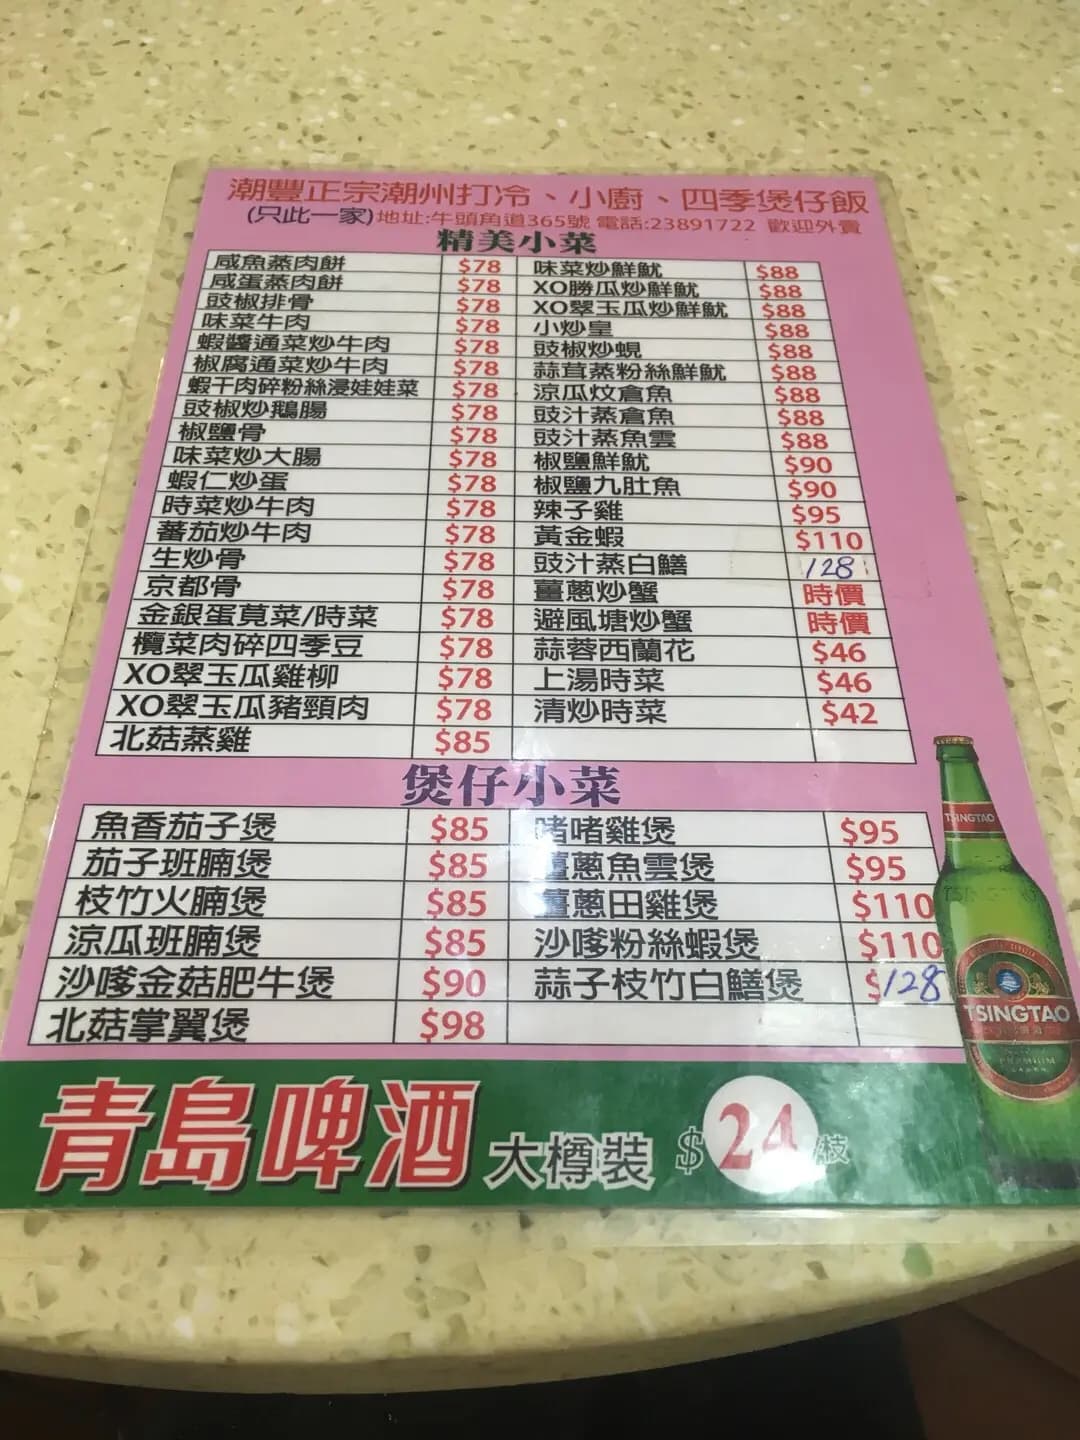 潮豐正宗潮州打冷、小廚、四季煲仔飯
(只此一家)地址:牛頭角道365號 電話:23891722 歡迎外賣
精美小菜
咸魚蒸肉餅 $78 味菜炒鮮魷 $88
咸蛋蒸肉餅 $78 XO勝瓜炒鮮魷 $88
豉椒排骨 $78 XO翠玉瓜炒鮮魷 $88
味菜牛肉 $78 小炒皇 $88
蝦醬通菜炒牛肉 $78 豉椒炒蜆 $88
椒腐通菜炒牛肉 $78 蒜茸蒸粉絲鮮魷 $88
蝦干肉碎粉絲浸娃娃菜 $78 涼瓜炆倉魚 $88
豉椒炒鵝腸 $78 豉汁蒸倉魚 $88
椒鹽骨 $78 豉汁蒸魚雲 $88
味菜炒大腸 $78 椒鹽鮮魷 $90
蝦仁炒蛋 $78 椒鹽九肚魚 $90
時菜炒牛肉 $78 辣子雞 $95
蕃茄炒牛肉 $78 黃金蝦 $110
生炒骨 $78 豉汁蒸白鱔 128
京都骨 $78 薑蔥炒蟹 時價
金銀蛋莧菜/時菜 $78 避風塘炒蟹 時價
欖菜肉碎四季豆 $78 蒜蓉西蘭花 $46
XO翠玉瓜雞柳 $78 上湯時菜 $46
XO翠玉瓜豬頸肉 $78 清炒時菜 $42
北菇蒸雞 $85
煲仔小菜
魚香茄子煲 $85 啫啫雞煲 $95
茄子班腩煲 $85 薑蔥魚雲煲 $95
枝竹火腩煲 $85 薑蔥田雞煲 $110
涼瓜班腩煲 $85 沙嗲粉絲蝦煲 $110
沙嗲金菇肥牛煲 $90 蒜子枝竹白鱔煲 $128
北菇掌翼煲 $98
TSINGTAO
TSINGTAO
PREMIUM
青島啤酒 大樽裝 $24/枝